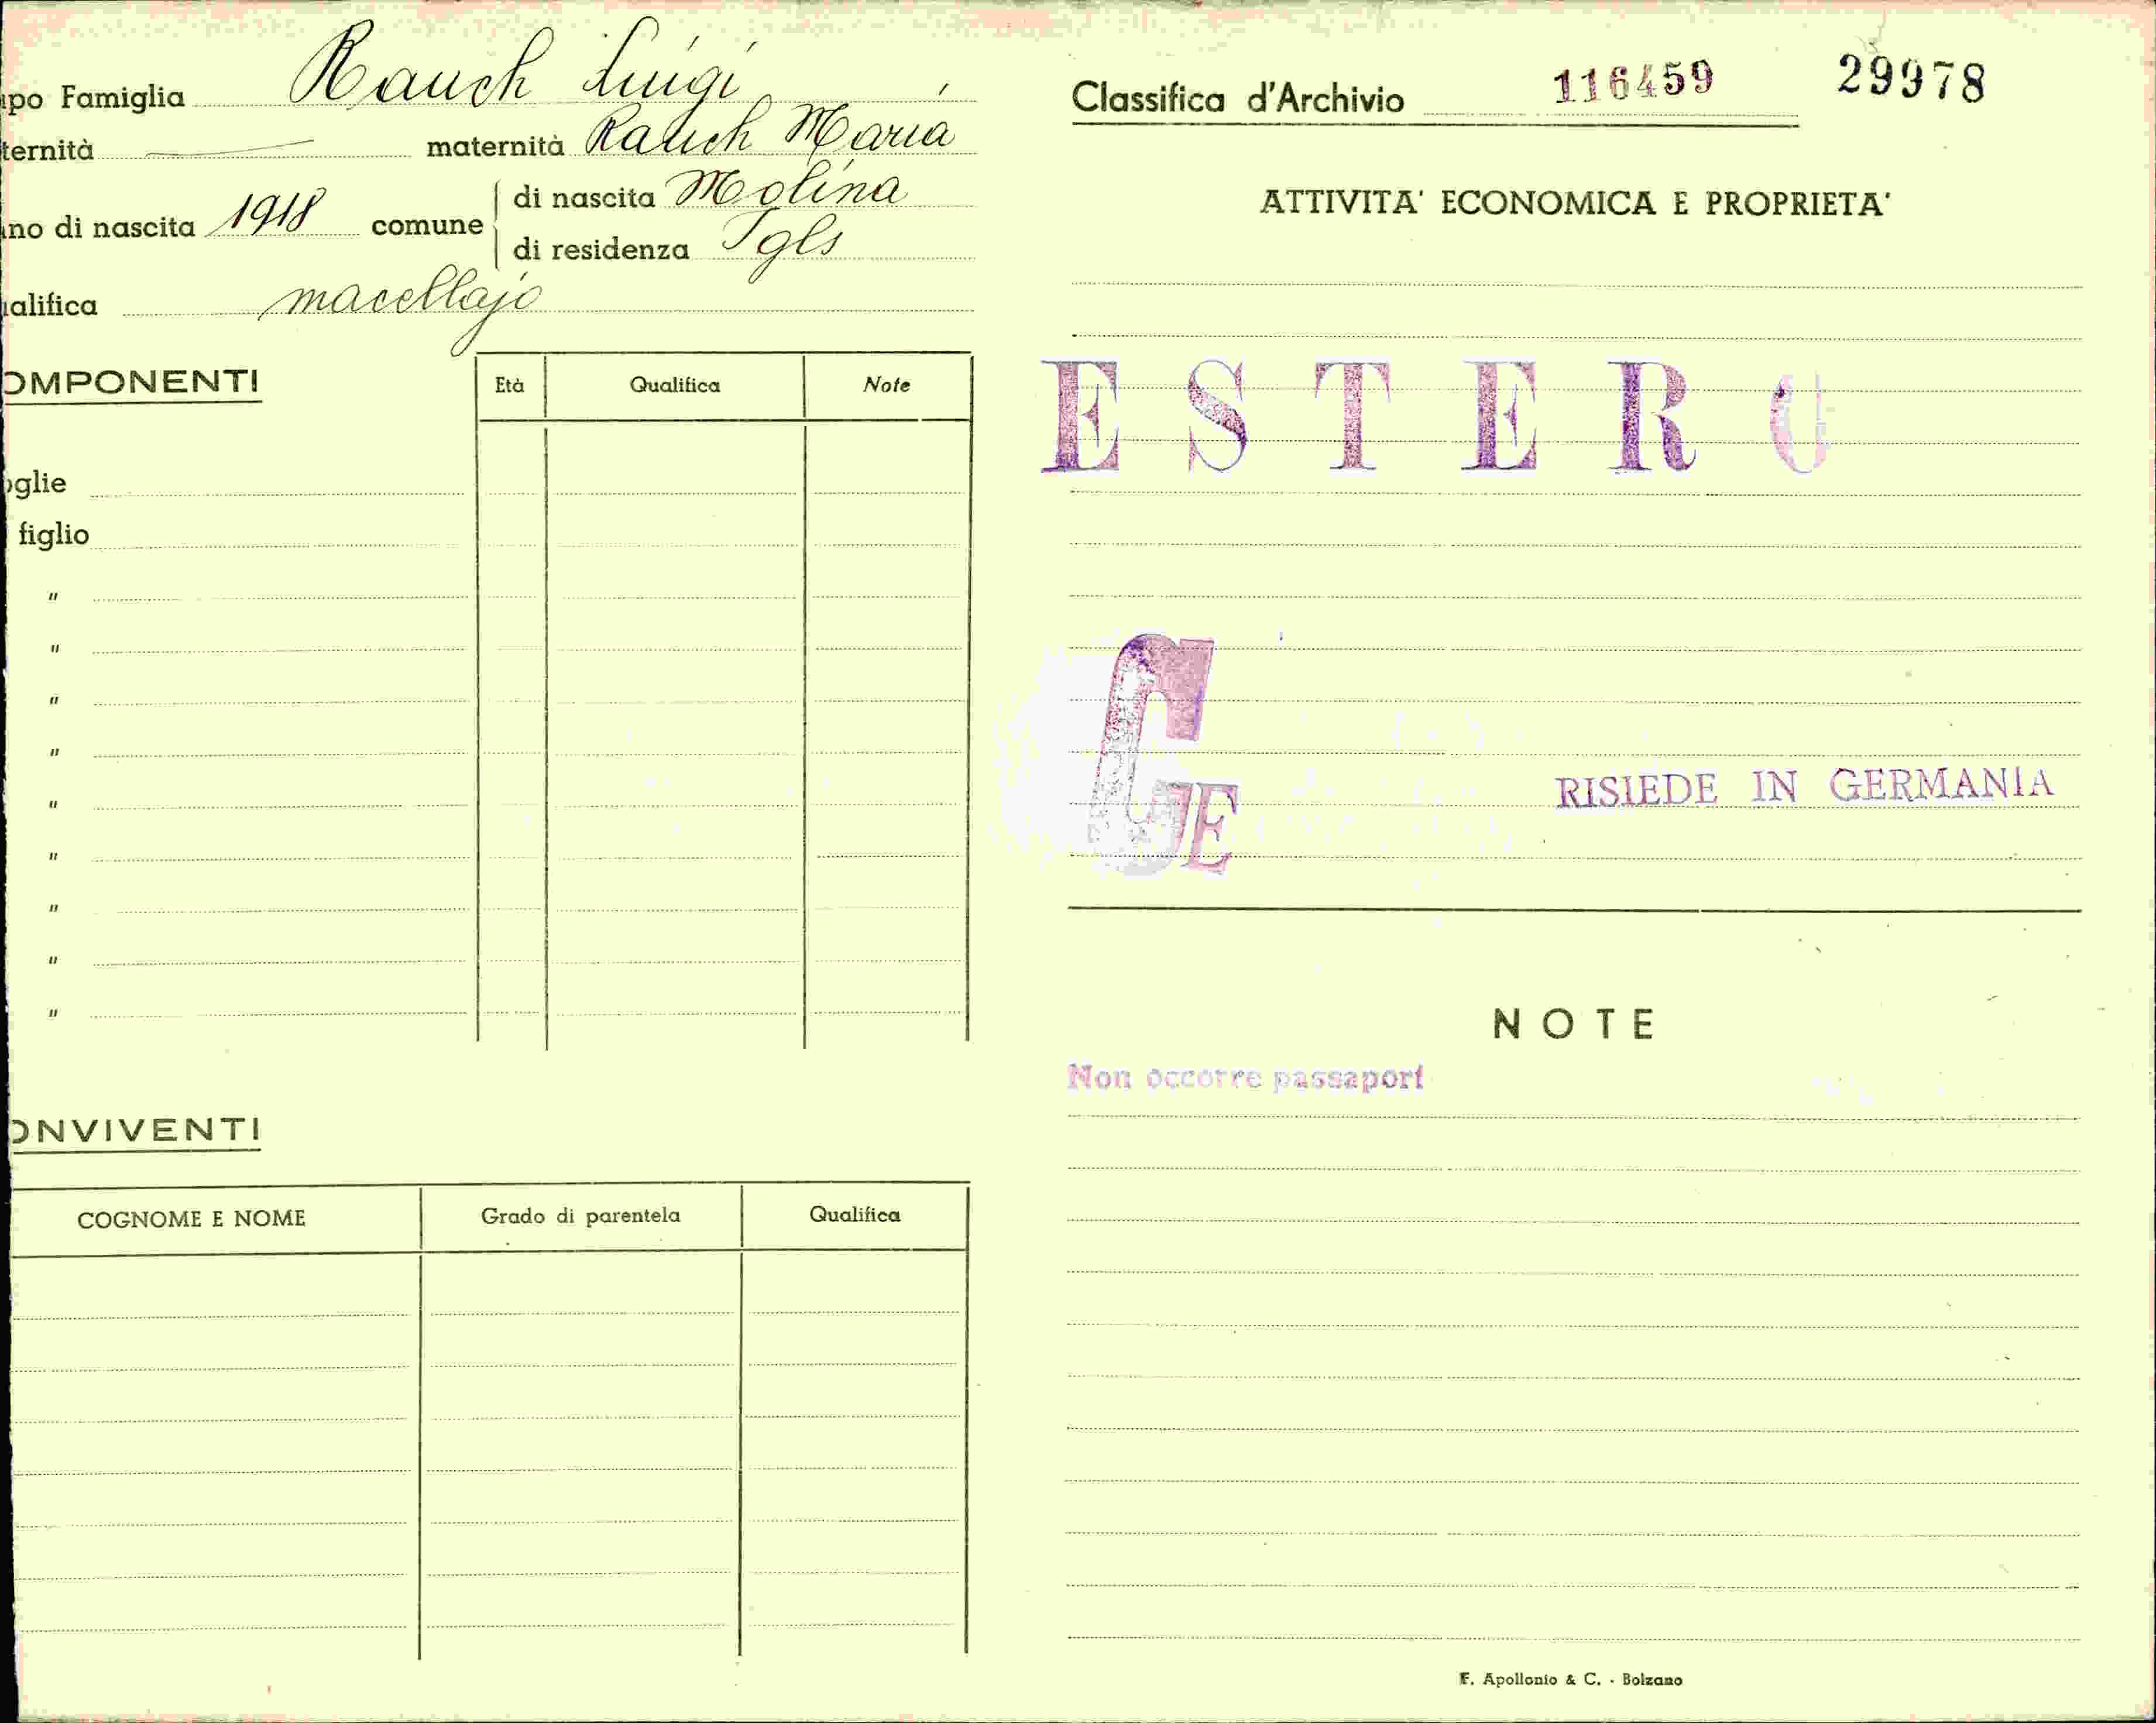 ipo Famiglia Rauch Luigi
ternità maternità Rauch Maria
no di nascita 1918 comune di nascita Molina
di residenza Igls
alifica macellajo
OMPONENTI
Età Qualifica Note
oglie
figlio
"
"
"
"
"
"
"
"
"
ONVIVENTI
COGNOME E NOME Grado di parentela Qualifica
Classifica d'Archivio 116459 29978
ATTIVITA' ECONOMICA E PROPRIETA'
ESTERO
GE
RISIEDE IN GERMANIA
NOTE
Non occorre passaport
F. Apollonio & C. - Bolzano